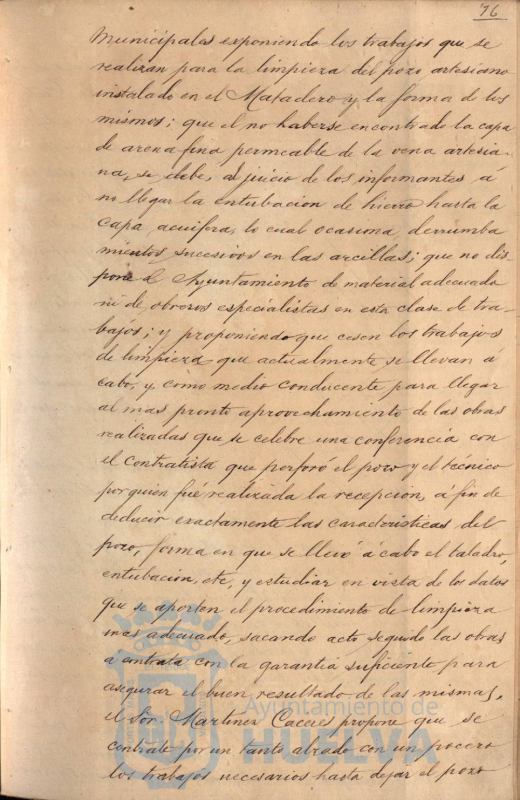 76
Municipales exponiendo los trabajos que se
realizan para la limpieza del pozo artesiano
instalado en el Matadero y la forma de los
mismos; que el no haberse encontrado la capa
de arena fina permeable de la vena artesia-
na, se debe, al juicio de los informantes á
no llegar la entubacion de hierro hasta la
capa acuifera, lo cual ocasiona derrumba
mientos sucesivos en las arcillas; que no dis-
pone el Ayuntamiento de material adecuado
ni de obreros especialistas en esta clase de tra-
bajos; y proponiendo que cesen los trabajos
de limpieza que actualmente se llevan a
cabo, y, como medio conducente para llegar
al mas pronto aprovechamiento de las obras
realizadas que se celebre una conferencia con
el contratista que perforó el pozo y el técnico
por quien fué realizada la recepcion, á fin de
deducir exactamente las caracteristicas del
pozo, forma en que se llevó á cabo el taladro,
entubacion, etc, y estudiar en vista de los datos
que se aporten el procedimiento de limpieza
mas adecuado, sacando acto seguido las obras
a contrata con la garantia suficiente para
asegurar el buen resultado de las mismas,
el Sor. Martinez Caceres propone que se
contrate por un tanto alzado con un pocero
los trabajos necesarios hasta dejar el pozo
Ayuntamiento de
HUELVA